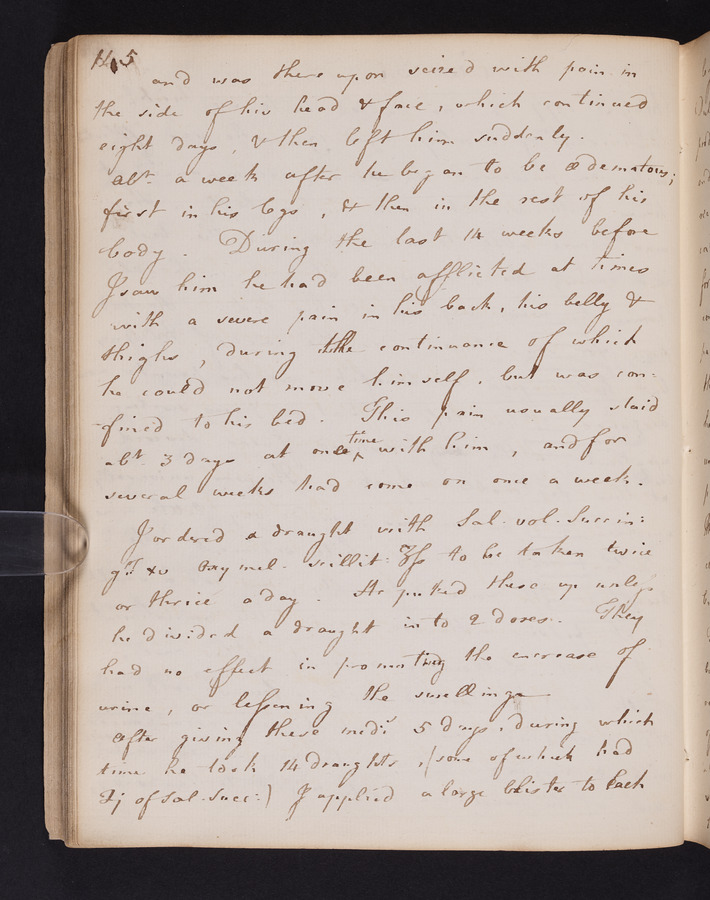 145
and was thereupon seized with pain in
the side of his head & face, which continued
eight days, & then left him suddenly.
abt. a week after he began to be œdematous;
first in his legs, & then in the rest of his
body. During the last 14 weeks before
I saw him he had been afflicted at times
with a severe pain in his back, his belly &
thighs, during the continuance of which
he could not move himself, but was con=
=fined to his bed. This pain usually staid
abt. 3 days at one time with him, and for
several weeks had come on once a week.
I ordered a draught with Sal. vol. Succin:
grs. xv Oxymel. scillit. ʒſs to be taken twice
or thrice a day. He puked these up unleſs
he divided a draught into 2 doses. They
had no effect in promoting the encrease of
urine, or leſsening the swellings
After giving these medi: 5 days, during which
time he took 14 draughts, (some of which had
℈j of Sal. Succ:) I applied a large blister to each